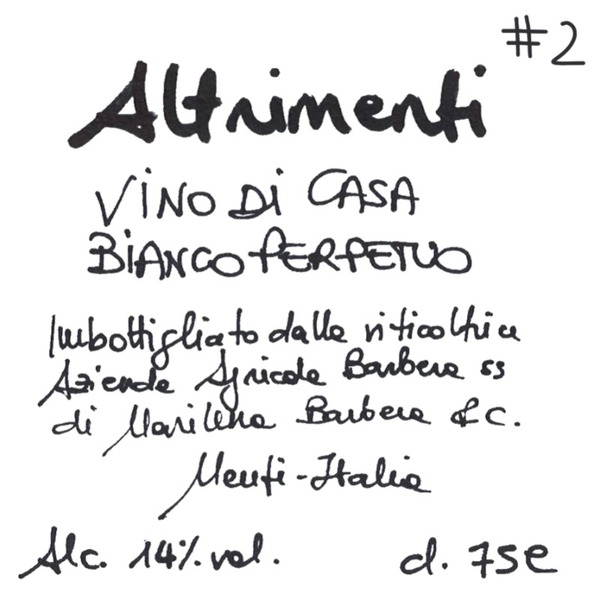 #2
Altrimenti
VINO Di CASA
BIANCO PERPETUO
Imbottigliato dalla viticoltrice
Azienda Agricola Barbera ss
di Marilena Barbera & C.
Menfi - Italia
Alc. 14% vol. cl. 75 e